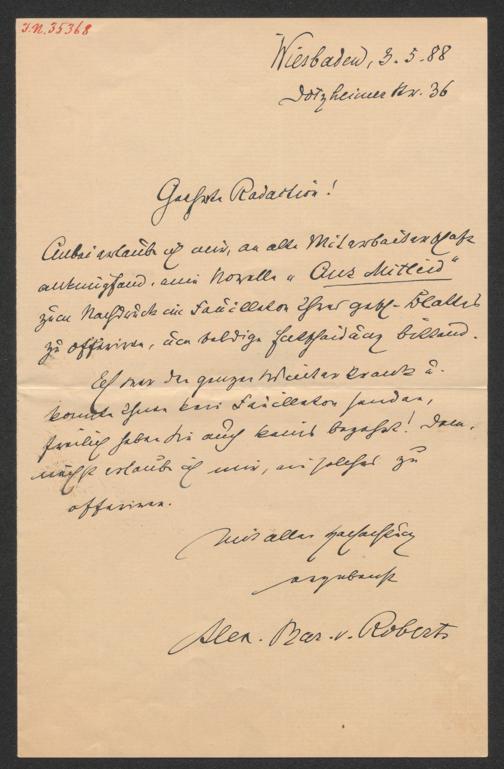 J.N. 35368
Wiesbaden, 3.5.88
Dotzheimer Str. 36
Geehrte Redaction!
Anbei erlaube ich mir, an alte Mitarbeiterschaft
anknüpfend, eine Novelle „Aus Mitleid"
zum Nachdruck im Feuilleton Ihres gesch. Blattes
zu offeriren, um baldige Entscheidung bittend.
Ich war den ganzen Winter krank u.
konnte Ihnen kein Feuilleton senden,
freilich haben Sie auch keins begehrt! Dem-
nächst erlaube ich mir, ein solches zu
offeriren.
Mit aller Hochachtung
ergebenst
Alex. Bar. v. Roberts